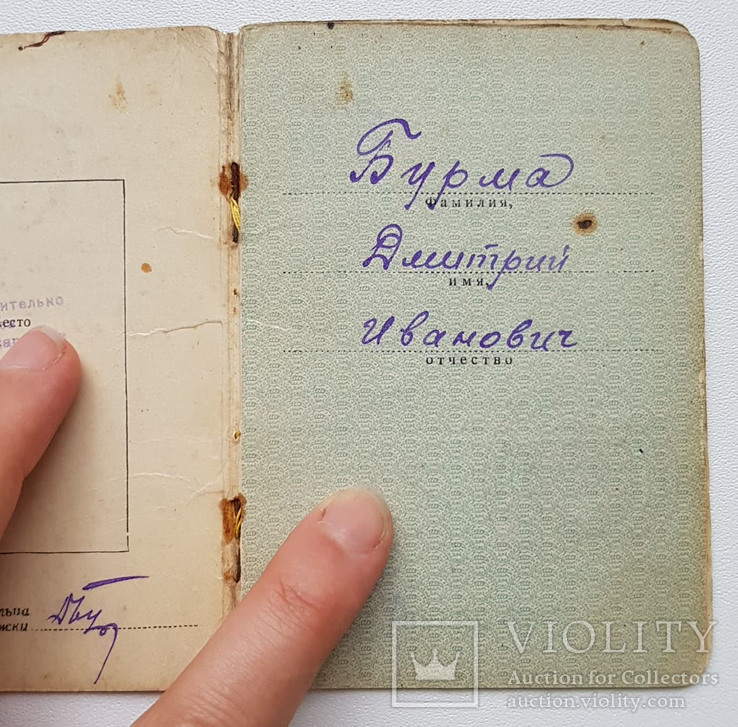 ительно
место
льца
жки
Бурма
Фамилия,
Дмитрий
имя,
Иванович
отчество
VIOLITY
Auction for Collectors
auction.violity.com